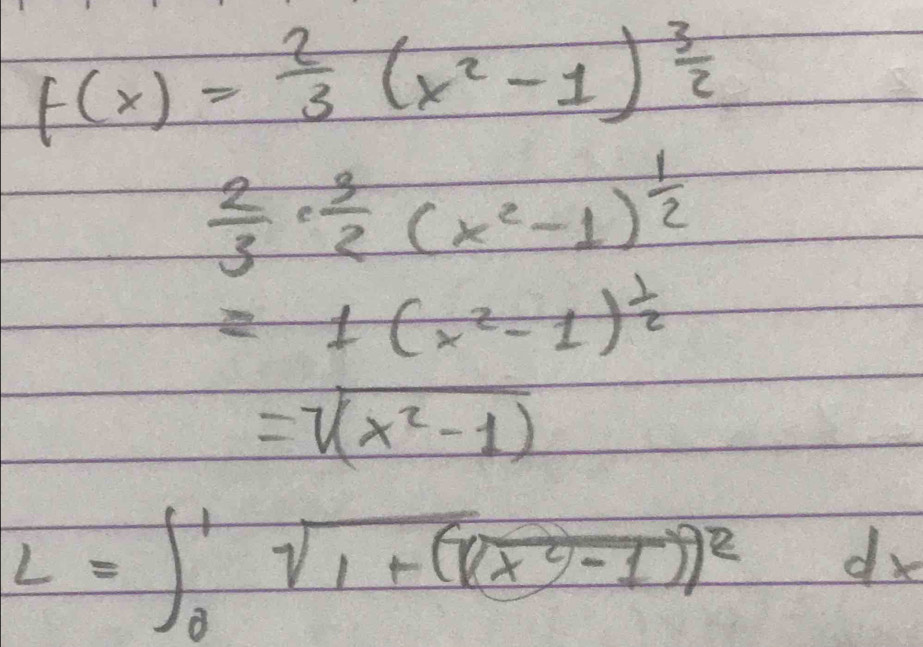 f(x) = 2/3 (x² - 1)^3/2
2/3 · 3/2 (x² - 1)^1/2
= 1 (x² - 1)^1/2
= √(x² - 1)
L = ∫₀¹ √1 + (√(x² - 1))² dx